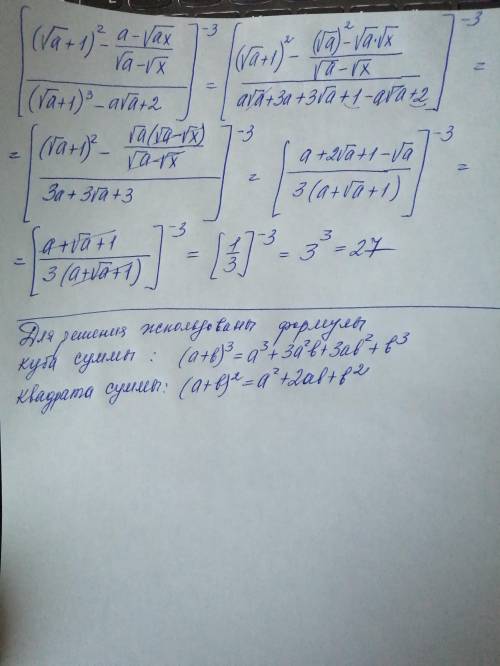 [((√a+1)² - (a-√ax)/(√a-√x)) / ((√a+1)³ - a√a+2)]⁻³ = [((√a+1)² - ((√a)²-√a·√x)/(√a-√x)) / (a√a+3a+3√a+1-a√a+2)]⁻³ =
= [((√a+1)² - √a(√a-√x)/(√a-√x)) / (3a+3√a+3)]⁻³ = [(a+2√a+1-√a) / (3(a+√a+1))]⁻³ =
= [(a+√a+1) / (3(a+√a+1))]⁻³ = [1/3]⁻³ = 3³ = 27
Для решения использованы формулы
куба суммы : (a+b)³=a³+3a²b+3ab²+b³
квадрата суммы: (a+b)²=a²+2ab+b²